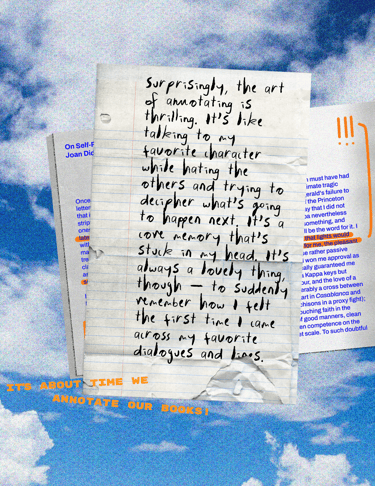 Surprisingly, the art
of annotating is
thrilling. It's like
talking to my
favorite character
while hating the
others and trying to
decipher what's going
to happen next. It's a
core memory that's
stuck in my head. It's
always a lovely thing,
though — to suddenly
remember how I felt
the first time I came
across my favorite
dialogues and lines.
On Self-R
Joan Did
Once
must have had
tragic
failure to
the Princeton
that I did not
nevertheless
and
be the word for it. I
that lights would
for me, the pleasant
rather passive
won me approval as
guaranteed me
Kappa keys but
and the love of a
a cross between
in Casablanca and
in a proxy fight);
faith in the
good manners, clean
competence on the
scale. To such doubtful
IT'S ABOUT TIME WE
ANNOTATE OUR BOOKS!